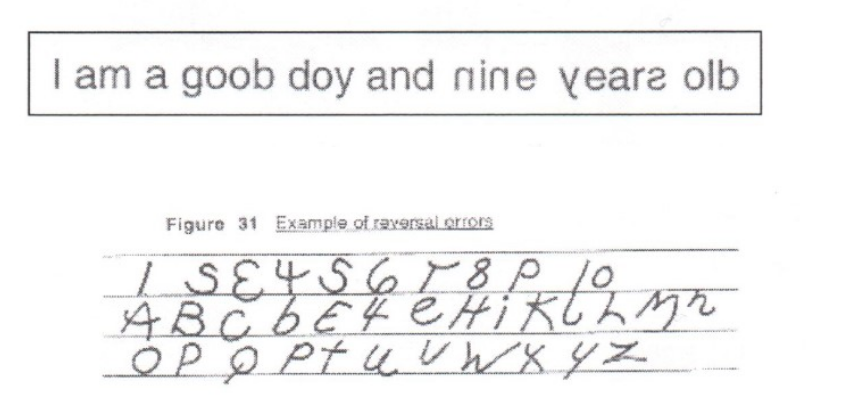 I am a goob doy and nine years olb
Figure 31 Example of reversal errors
1 S E 4 S 6 T 8 P 10
A B C b E 4 e H i K L h M n
O P Q P t u v W X y Z